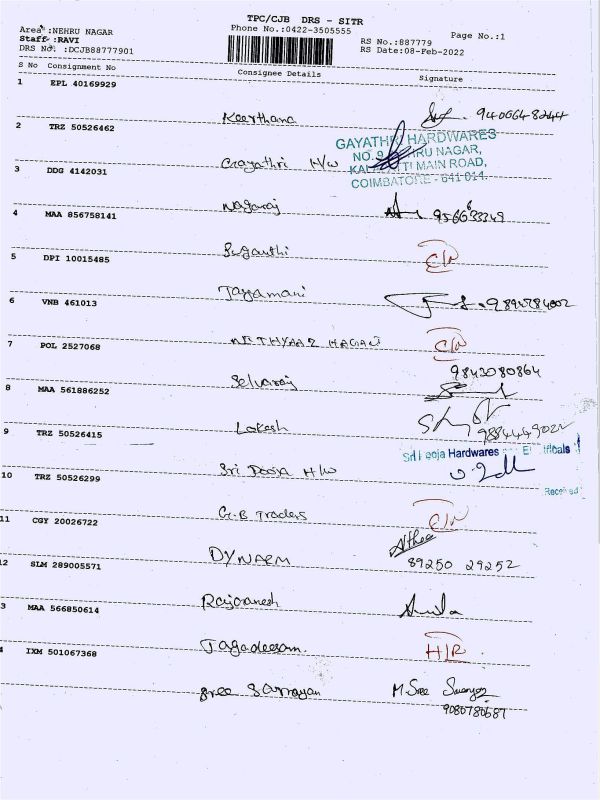 TPC/CJB DRS - SITR
Area :NEHRU NAGAR
Phone No.:0422-3505555
Page No.:1
Staff :RAVI
RS No.:887779
DRS No. :DCJB88777901
RS Date:08-Feb-2022
S No Consignment No Consignee Details Signature
1 EPL 40169929
Keerthana
2 TRZ 50526462
GAYATHRI HARDWARES
NO. 9 NEHRU NAGAR,
Gayathri H/W
MAIN ROAD,
COIMBATORE - 641 014.
3 DDG 4142031
Nagaraj
4 MAA 856758141
Suganthi
C/N
5 DPI 10015485
Jayamani
6 VNB 461013
C/N
7 POL 2527068
9842080864
Selvaraj
8 MAA 561886252
Lokesh
9 TRZ 50526415
Sri Pooja Hardwares
Sri Pooja H/W
Received
10 TRZ 50526299
G.B Traders
C/N
11 CGY 20026722
89250 29252
12 SLM 289005571
Rajganesh
13 MAA 566850614
Jagadeesan.
14 IXM 501067368
Sree
M. Sree